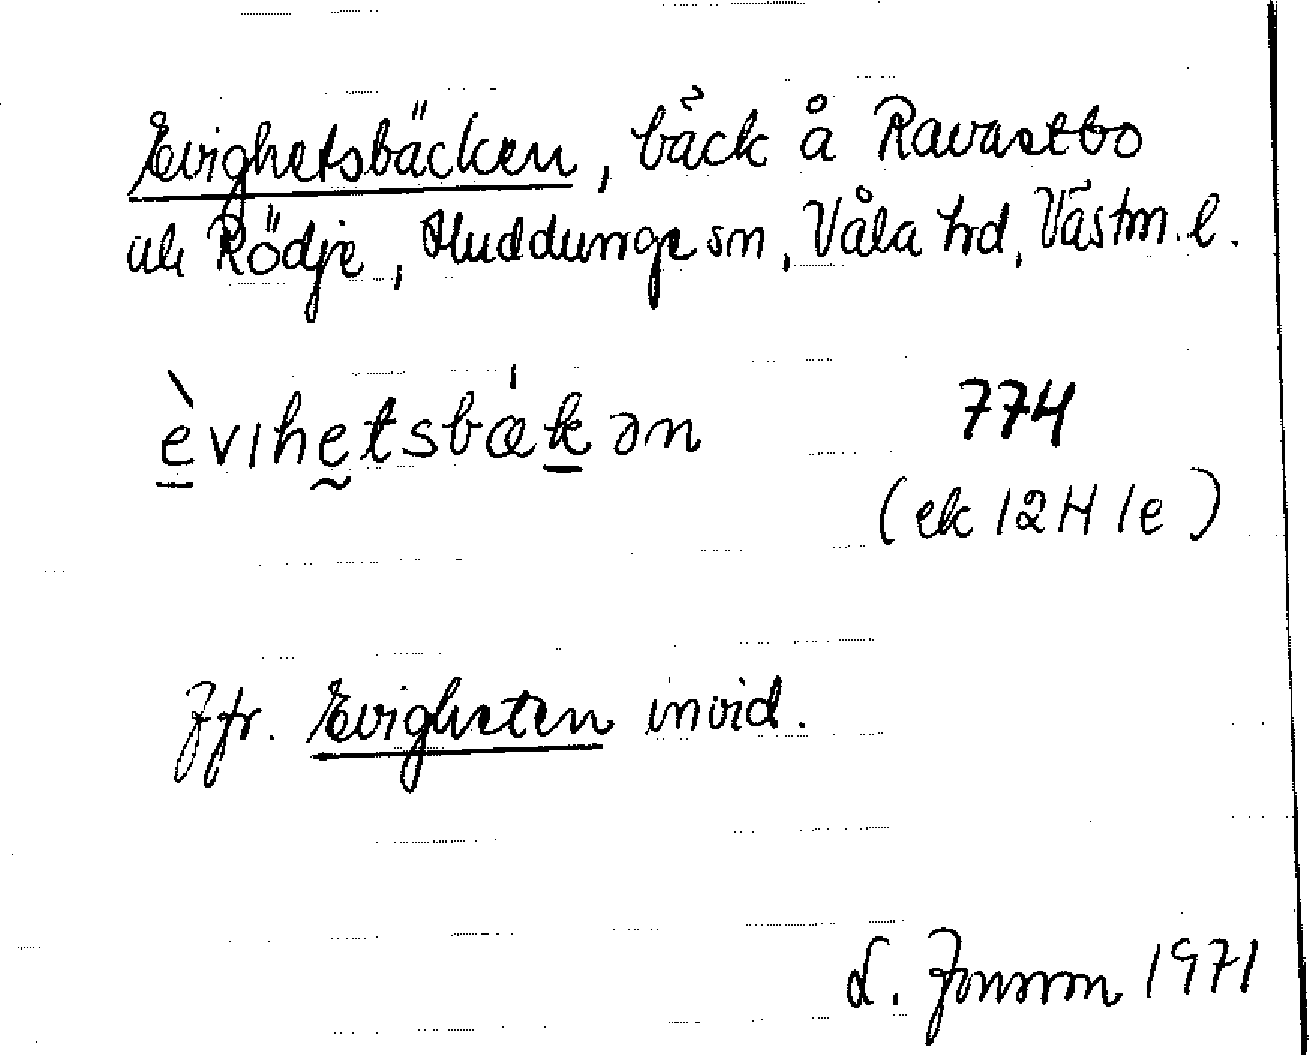 Evighetsbäcken, bäck å Ravastbo
ulr Rödje, Huddunge sn, Våla hd, Västm. l.
èvıhetsbækən 774
(ek 12H 1e)
Jfr. Evigheten invid.
L. Jonsson 1971